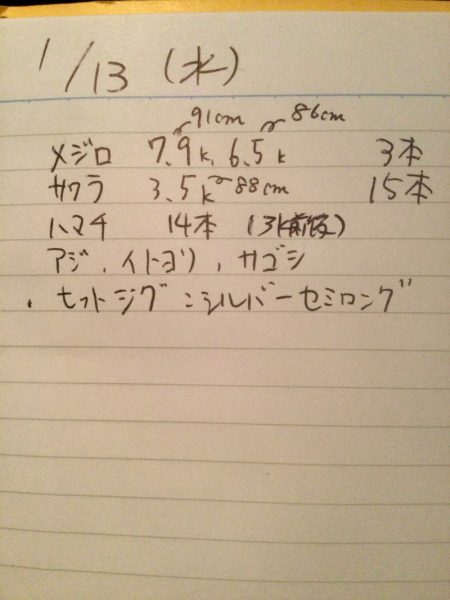 1/13 (水)
91cm 86cm
メジロ 7.9k, 6.5k 3本
サワラ 3.5k 88cm 15本
ハマチ 14本 (3k前後)
アジ、イトヨリ、サゴシ
・ヒットジグ:シルバーセミロング